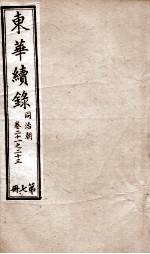 東華續錄
同治朝
卷二十一之二十三
第七冊